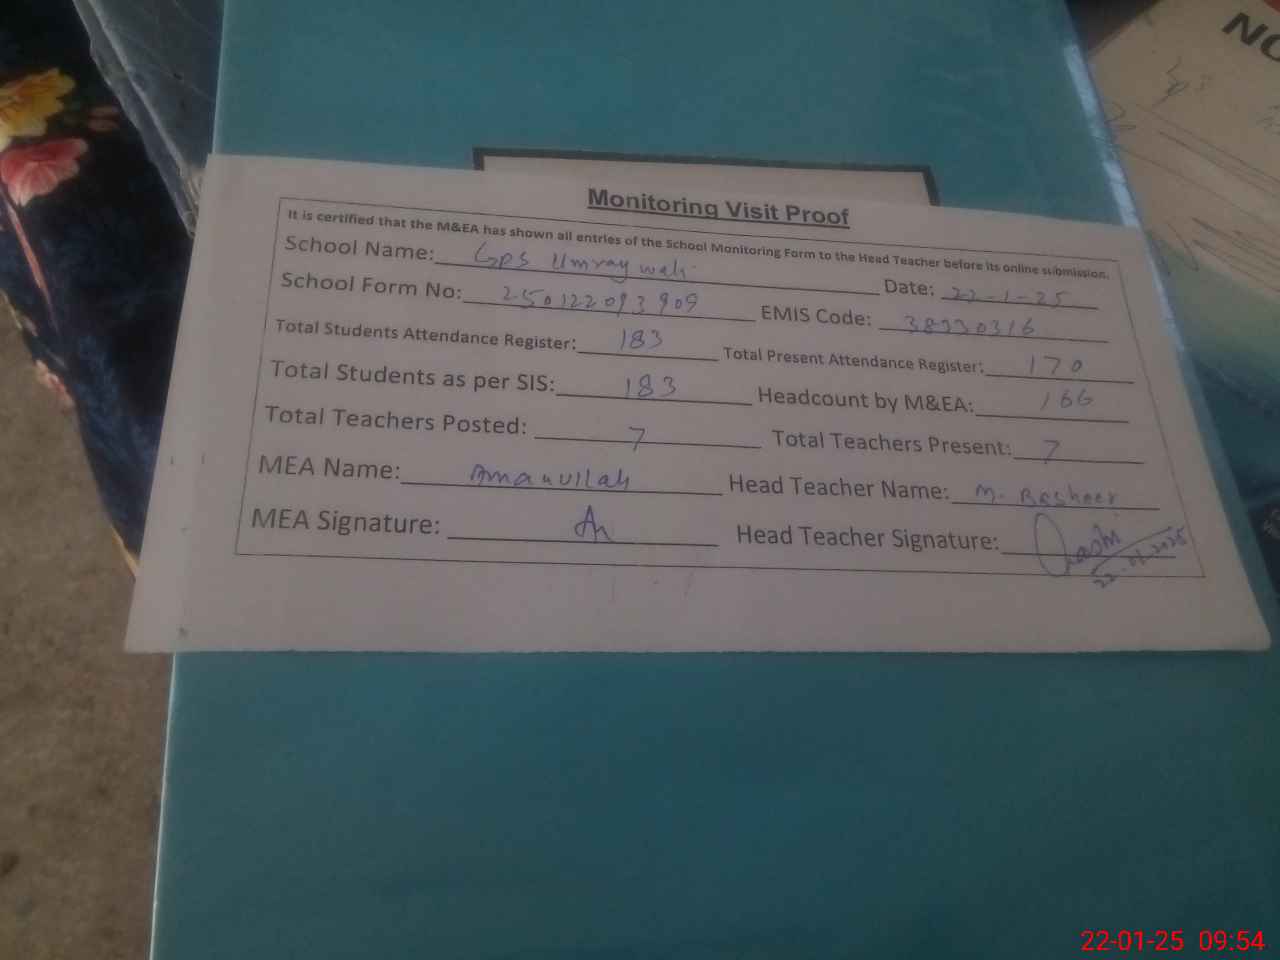 NO
Monitoring Visit Proof
It is certified that the M&EA has shown all entries of the School Monitoring Form to the Head Teacher before its online submission.
School Name: GPS Umraywali Date: 22-1-25
School Form No: 250122093909 EMIS Code: 38330316
Total Students Attendance Register: 183 Total Present Attendance Register: 170
Total Students as per SIS: 183 Headcount by M&EA: 166
Total Teachers Posted: 7 Total Teachers Present: 7
MEA Name: Amanullah Head Teacher Name: M. Basheer
MEA Signature: Head Teacher Signature:
22.01.2025
22-01-25 09:54